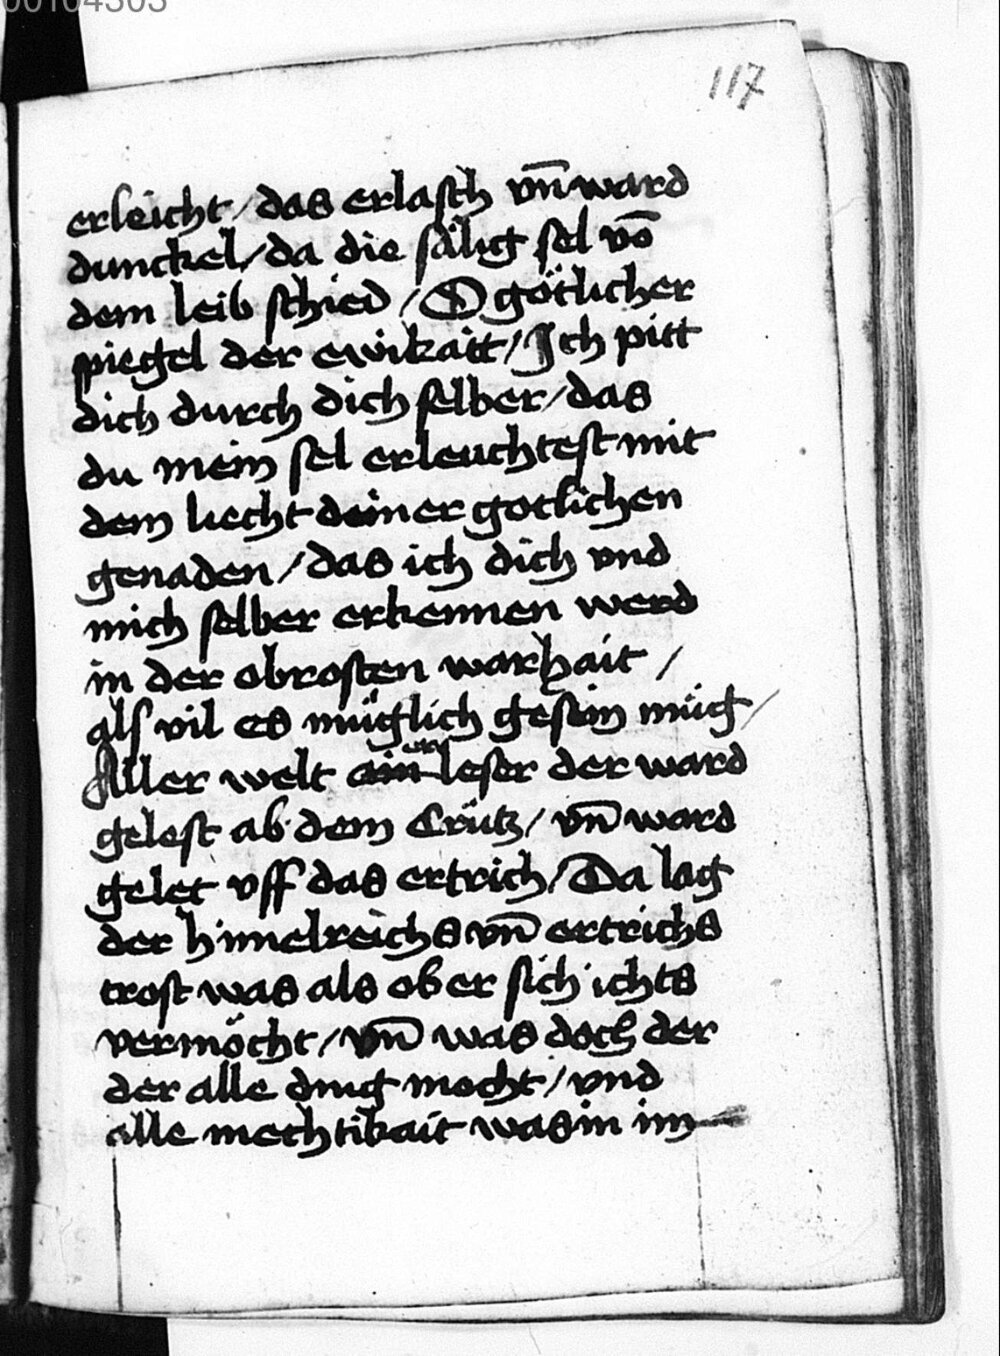 00104303
117
erleicht / das erlasch vn̄ ward
dunckel / da die sälig sel vō
dem leib schied / O götlicher
spiegel der ewikaitt / Ich pitt
dich durch dich selber / das
du mein sel erleuchtest mit
dem liecht deiner gotlichen
genaden / das ich dich vnd
mich selber erkennen werd
in der obrosten warhait /
als vil es müglich gesein müg /
Aller welt ain er leser der ward
gelest ab dem Crütz / vn̄ ward
gelet vff das ertrich / Da lag
der himelreichs vn̄ ertrichs
trost was als ober sich ichts
vermöcht / vn̄ was doch der
der alle ding mocht / vnd
alle mechtikait was in im